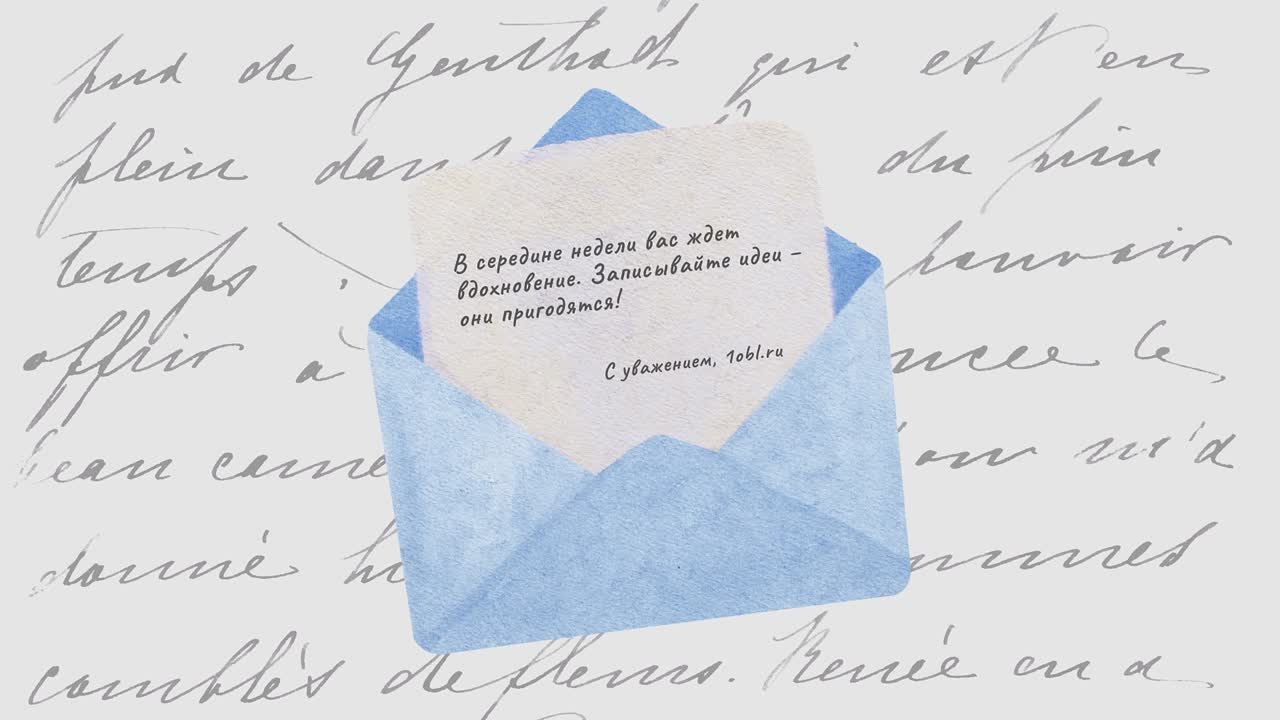 pus de Genthod qui est en
plein dans du pin
temps pouvoir
offrir à le
beau came on m'a
donné
comblés de fleurs. Renée en a
В середине недели вас ждет
вдохновение. Записывайте идеи –
они пригодятся!
С уважением, 1obl.ru